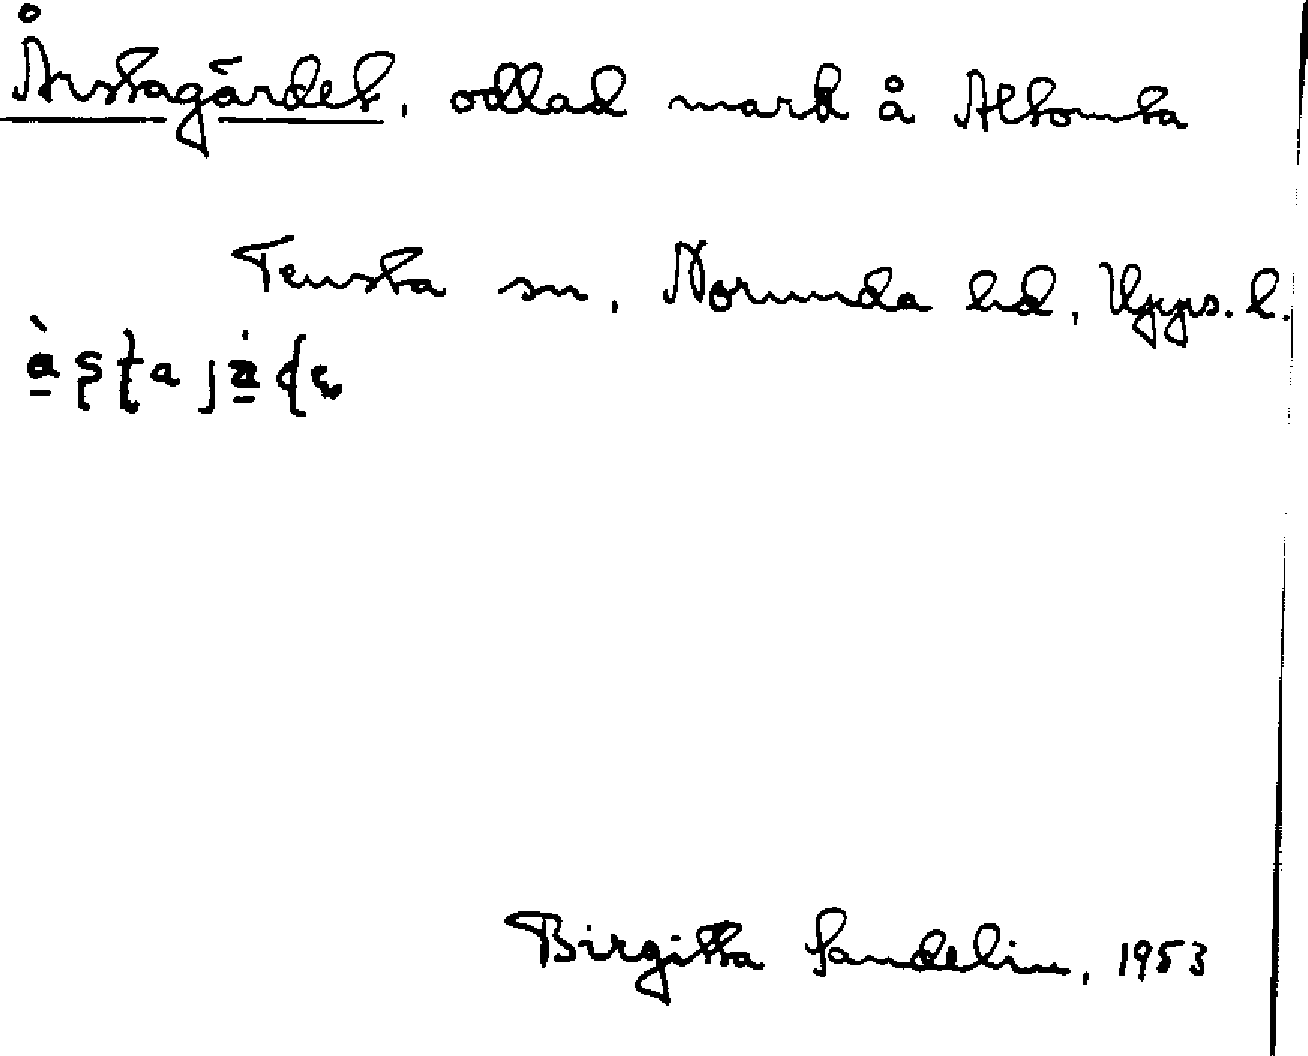 Årstagärdet, odlad mark å Altomta
Tensta sn, Norunda hd, Upps. l.
Birgitta Sandelin, 1953